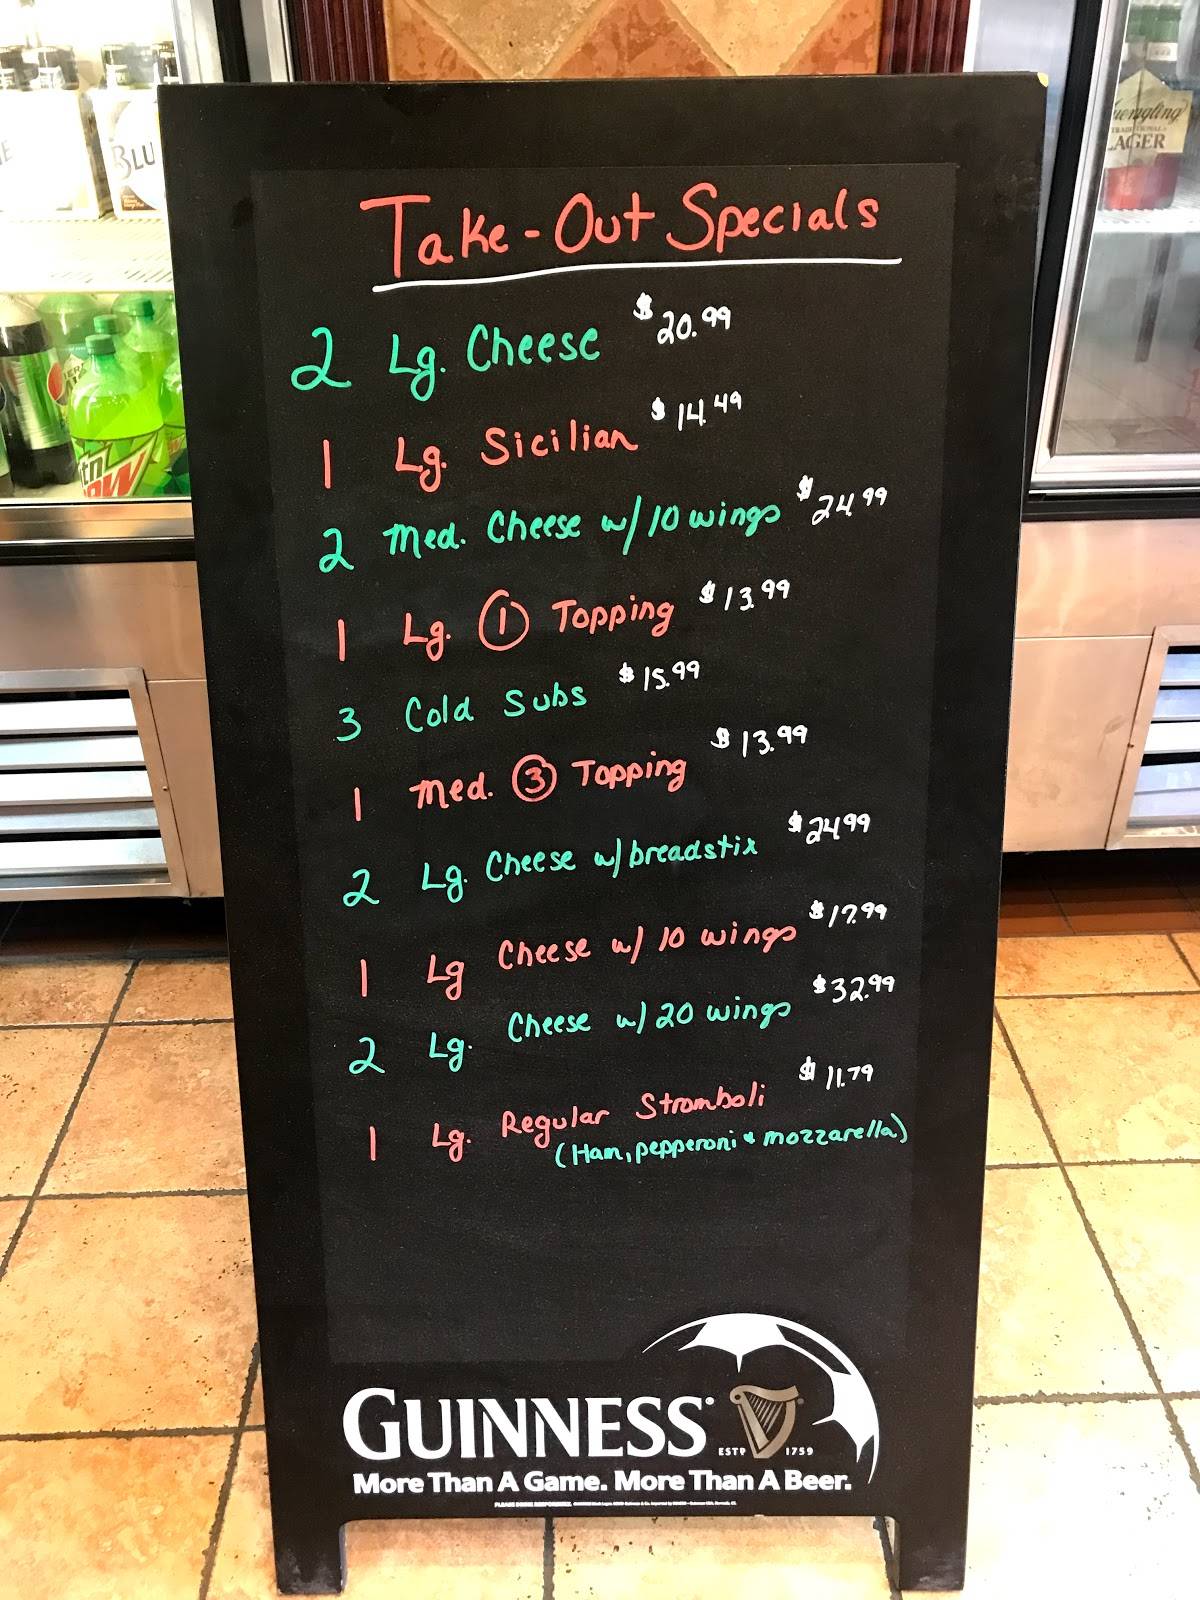 Take-Out Specials
2 Lg. Cheese $20.99
1 Lg. Sicilian $14.49
2 Med. Cheese w/ 10 wings $24.99
1 Lg. 1 Topping $13.99
3 Cold Subs $15.99
1 Med. 3 Topping $13.99
2 Lg. Cheese w/ breadstix $24.99
1 Lg Cheese w/ 10 wings $17.99
2 Lg. Cheese w/ 20 wings $32.99
1 Lg. Regular Stromboli $11.79
(Ham, pepperoni & mozzarella)
GUINNESS
ESTD 1759
More Than A Game. More Than A Beer.
PLEASE DRINK RESPONSIBLY.
BLU
LAGER